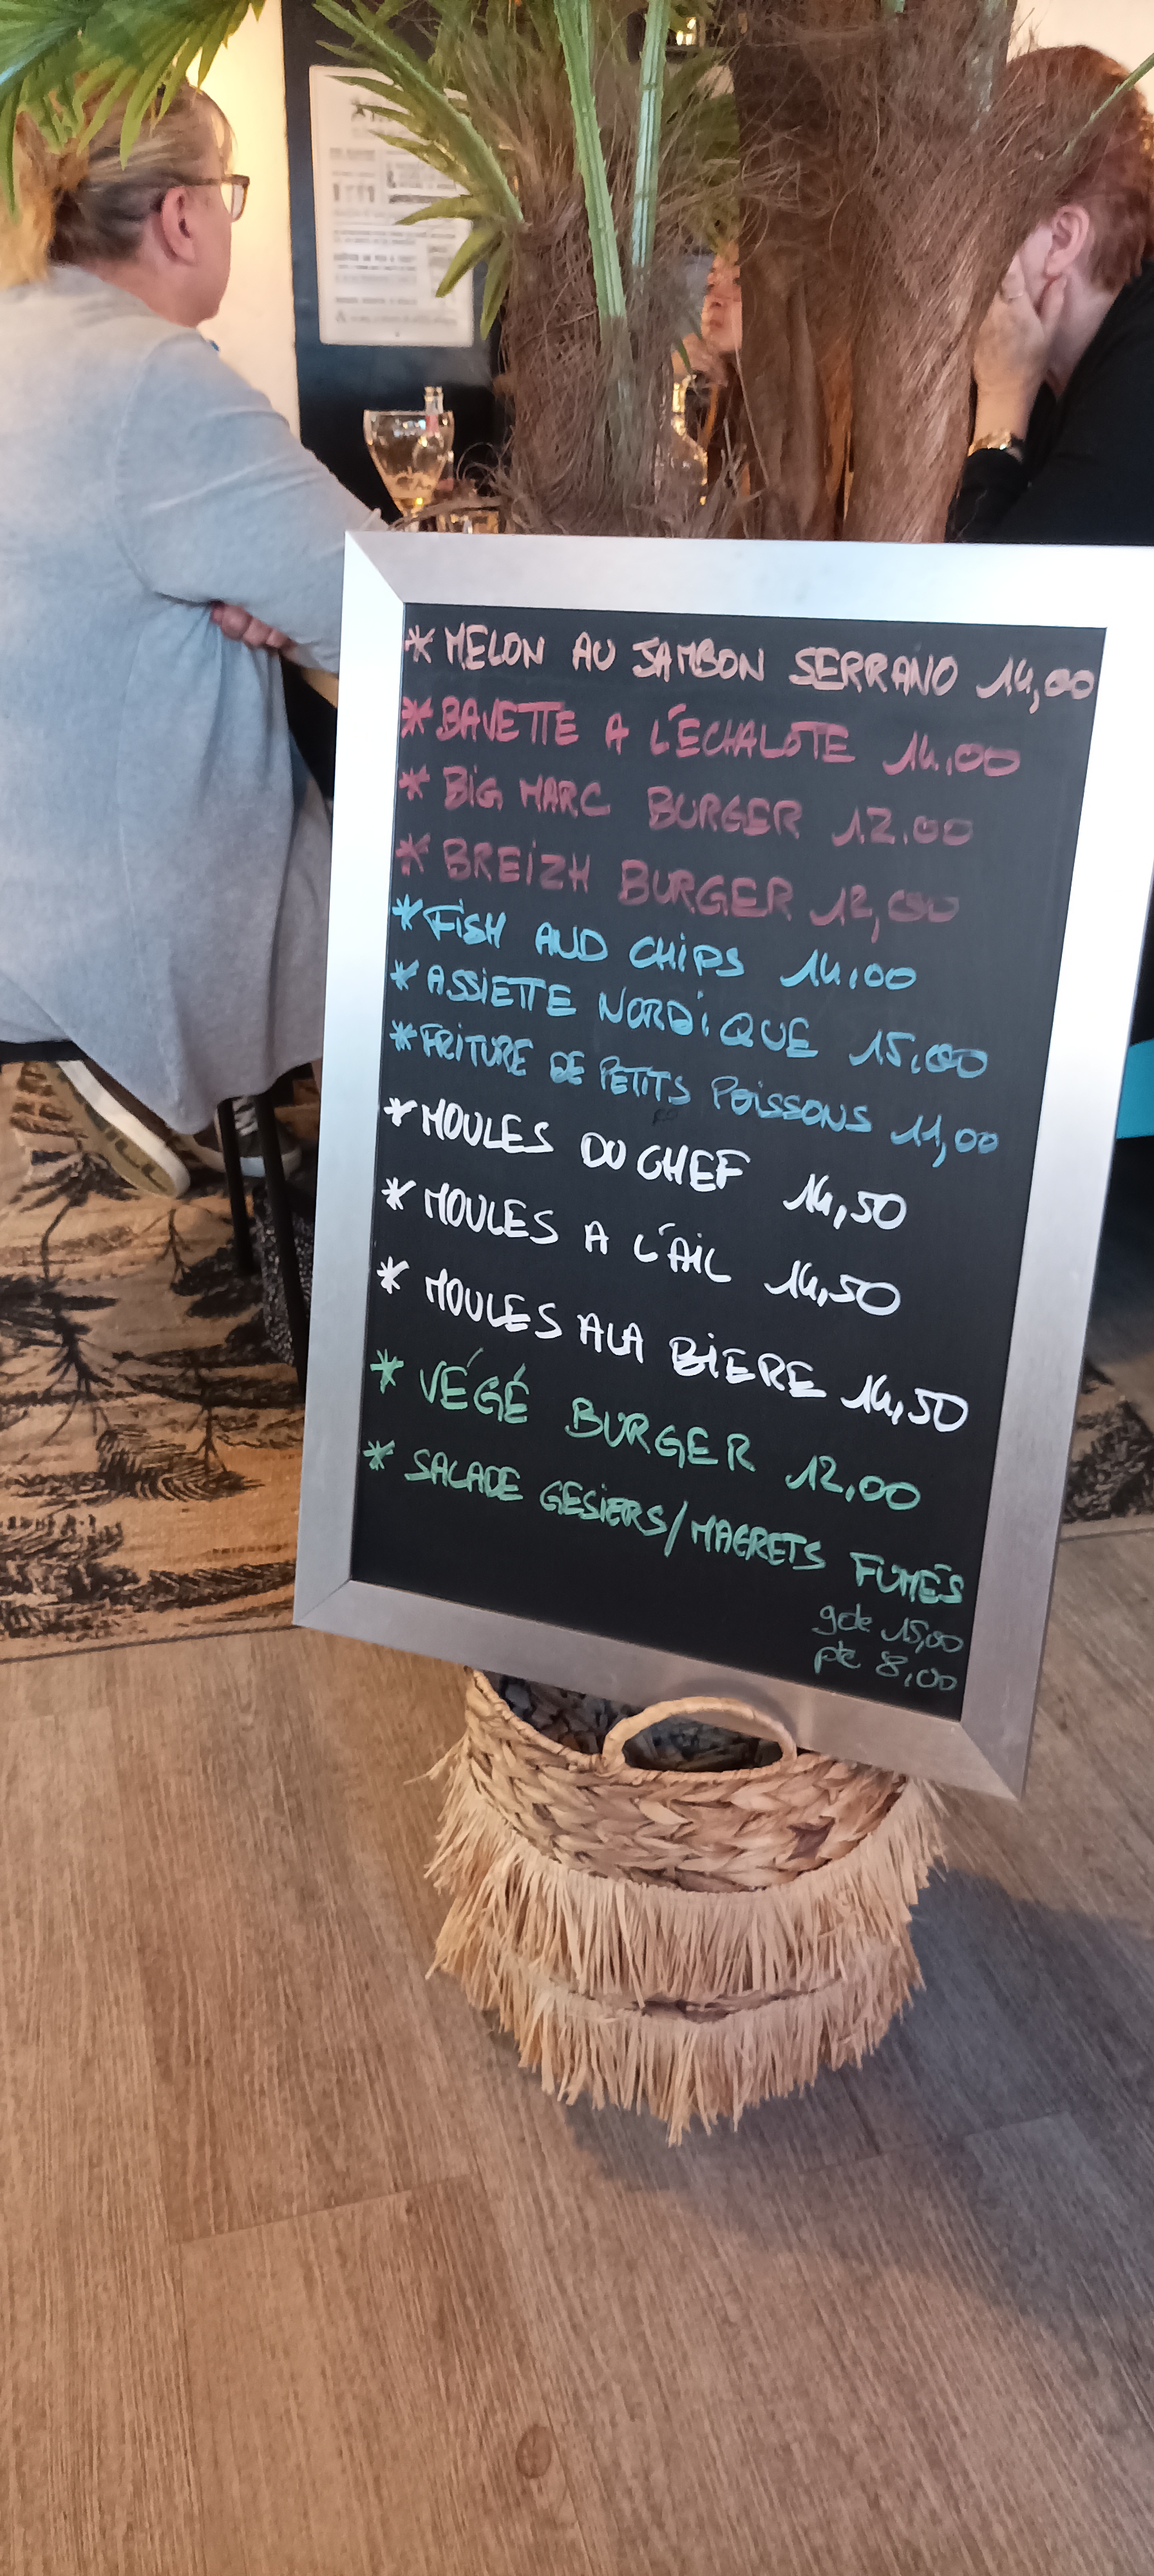 * MELON AU JAMBON SERRANO 14,00
* BAVETTE A L'ÉCHALOTE 14.00
* BiG MARC BURGER 12.00
* BREiZH BURGER 12,00
* FiSH AND CHiPS 14.00
* ASSIETTE NORDiQUE 15.00
* FRITURE DE PETITS POiSSONS 11,00
* MOULES DU CHEF 14,50
* MOULES A L'AiL 14,50
* MOULES A LA BiERE 14,50
* VÉGÉ BURGER 12.00
* SALADE GESiERS/MAGRETS FUMÉS
gde 15,00
pte 8,00